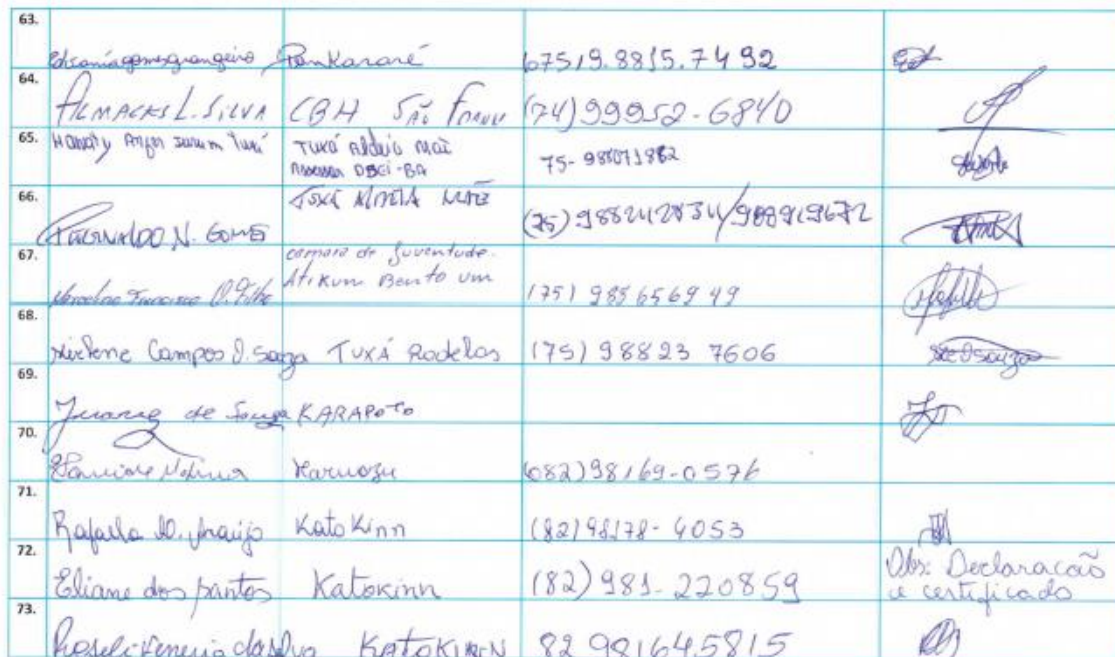 63.
Edsonia gomes grangeiro Pankararé (075)9.8815.7492
64.
ALMACKS L. SILVA CBH São Franc (74)99952-6840
65.
Tuxá TUXÁ Aldeia Mãe 75-988071882
DSEI-BA
66.
TUXÁ ALDEIA MÃE
N. GOMES (75)988242834/988919672
67.
camara de Juventude.
Atikum Bento um
Marcelino Francisco D. Filho (75) 988656949
68.
Mirlene Campos D. Souza TUXÁ Rodelas (75) 98823 7606
69.
Juarez de Souza KARAPOTO
70.
Karuazu (082)98169-0576
71.
Rafaella D. Araújo KatoKinn (82)98178-4053
72.
Eliane dos Santos Katokinn (82)981-220859 Obs: Declaracão
e certificado
73.
Roseli da Silva KATOKINN 82 981645815